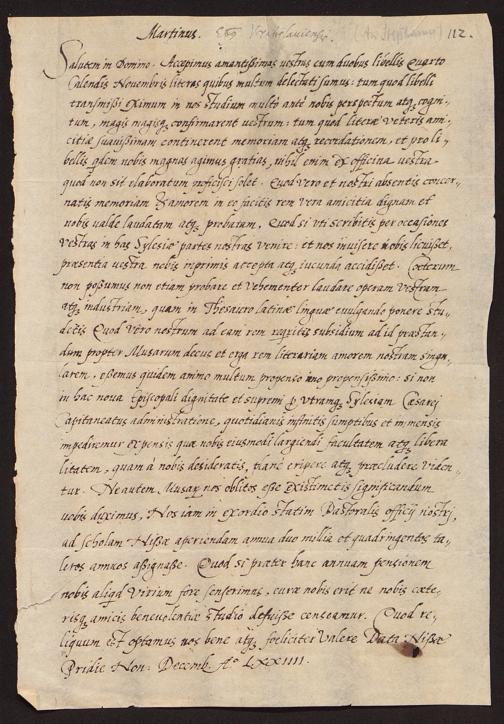 Martinus. Eps Vratislaviensis. (An Stephanum) 112.
Salutem in Domino. Accepimus amantissimas vestras cum duobus libellis Quarto
Calendis Novembris literas quibus multum delectati sumus: tum quod libelli
transmissi eximum in nos studium multo ante nobis perspectum atq cogni-
tum, magis magisq confirmarent vestrum: tum quod literae veteris ami-
citiae suavissimam continerent memoriam atq recordationem, et pro li-
bellis qdem nobis magnas agimus gratias, nihil enim ex officina vestra
quod non sit elaboratum proficisci solet. Quod vero et nostri absentis concor-
natis memoriam & amorem in eo facitis rem vera amicitia dignam et
nobis valde laudatam atq probatam, Quod si uti scribitis per occasiones
vestras in has Sylesiae partes nostras venire: et nos invisere vobis licuisset,
praesentia vestra nobis inprimis accepta atq iucunda accidisset. Coeterum
non possumus non etiam probare et vehementer laudare operam vestram
atq industriam, quam in Thesauro latinae linguae evulgando ponere stu-
detis Quod vero nostrum ad eam rem reqritis subsidium ad id praestan-
dum propter Musarum decus et erga rem literariam amorem nostrum singu-
larem, essemus quidem animo multum propenso imo propensissimo: si non
in hac nova Episcopali dignitate et supremi p utramq Sylesiam Caesarei
Capitaneatus administratione, quotidianis infinitis sumptibus et immensis
impediremur expensis quae nobis eiusmodi largiendi facultatem atq libera
litatem, quam à nobis desideratis, plane eripere atq praecludere viden-
tur. Ne autem, Musar nos oblitos esse existimetis significandum
vobis duximus, Nos iam in exordio statim Pastoralis officij nostri,
ad scholam Nissae aperiendam annua duo millia et quadringentos ta-
leros annuos assignasse. Quod si praeter hanc annuam pensionem
nobis aliqd virium fore senserimus, curae nobis erit ne nobis caete-
risq amicis benevolentiae studio defuisse censeamur. Quod re-
liquum est optamus vos bene atq foeliciter Valere Data Nissae
Pridie Non: Decemb. Ao LXXIIII.